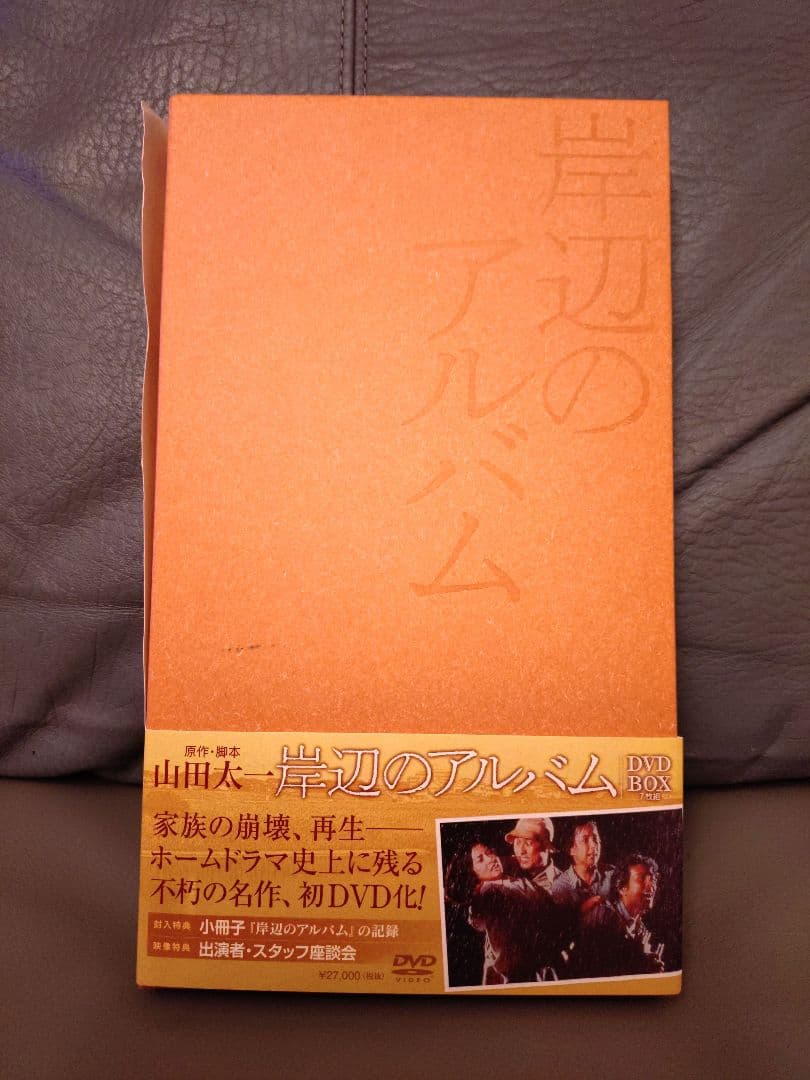 岸辺の
アルバム
原作・脚本
山田太一
岸辺のアルバム
DVD
BOX
7枚組
家族の崩壊、再生――
ホームドラマ史上に残る
不朽の名作、初DVD化!
封入特典 小冊子『岸辺のアルバム』の記録
映像特典 出演者・スタッフ座談会
¥27,000(税抜)
DVD
VIDEO